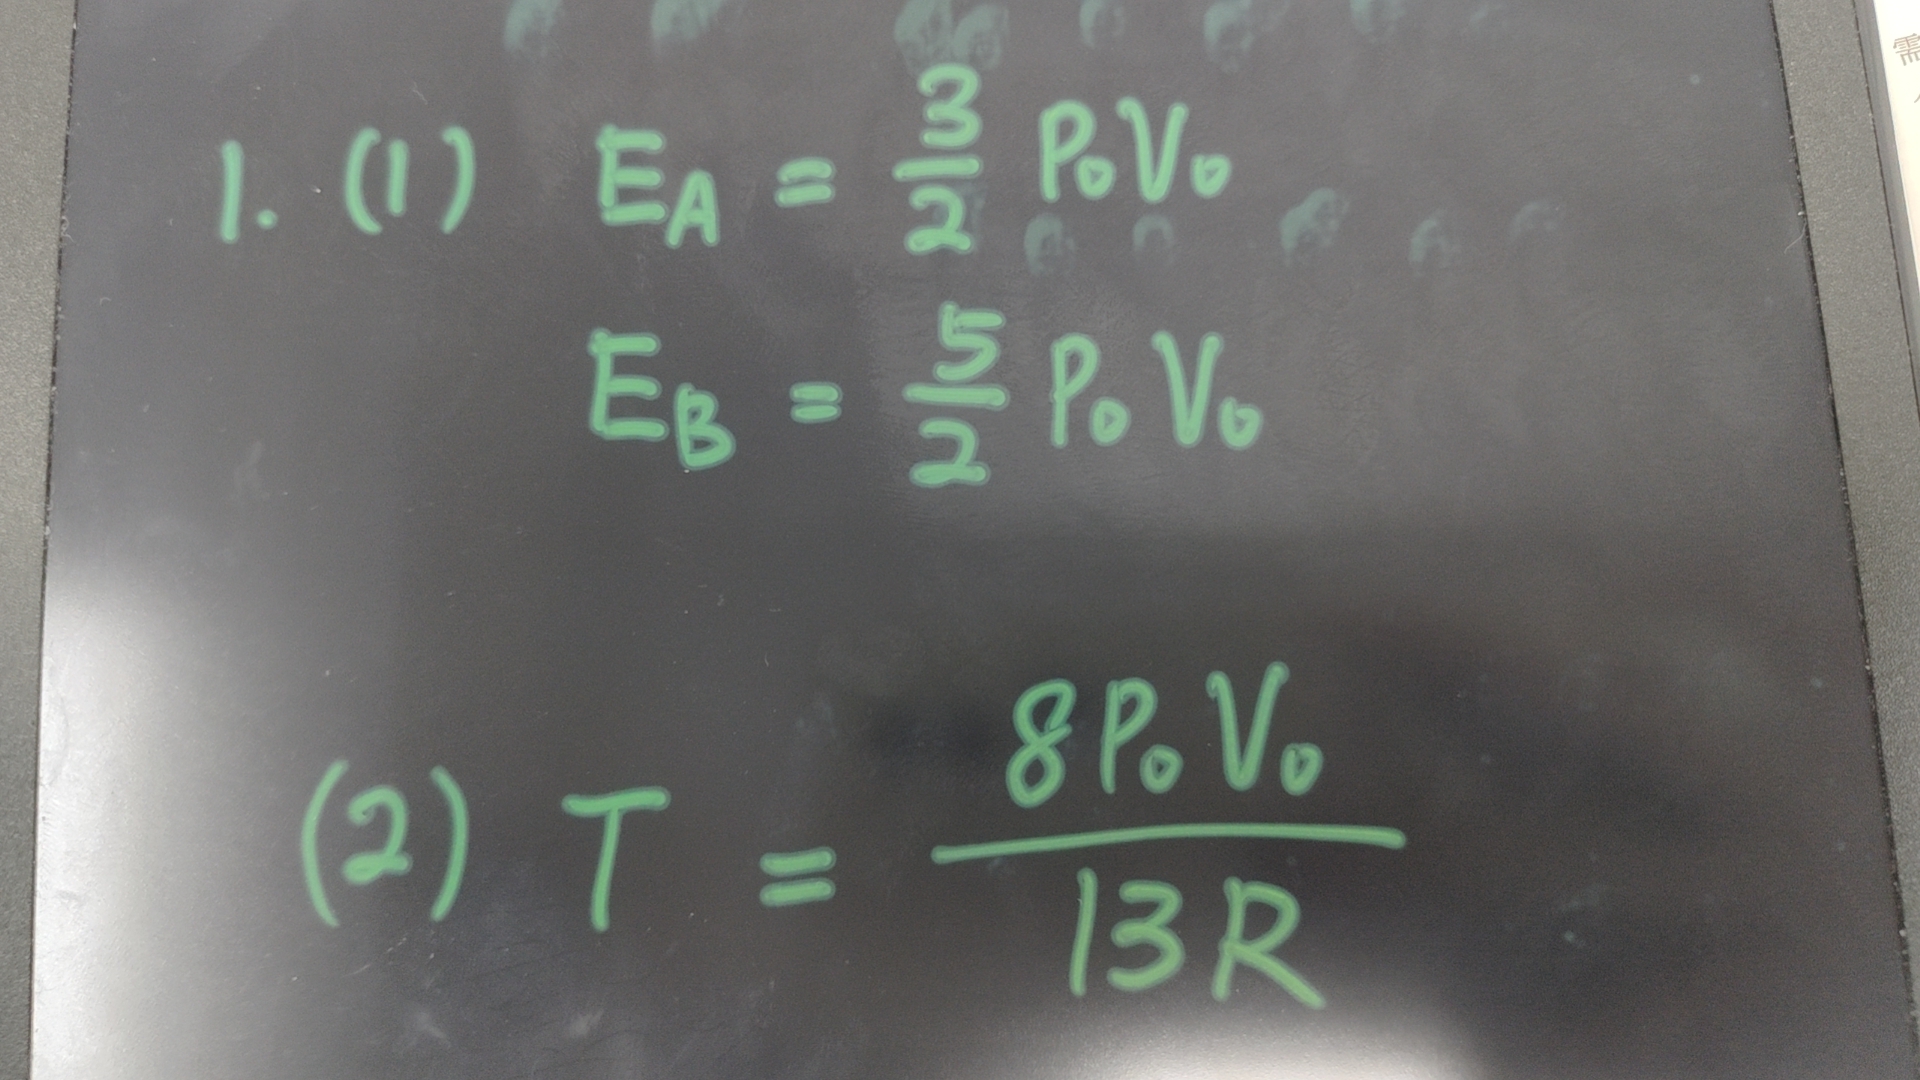 1. (1) E_A = 3/2 P₀V₀
E_B = 5/2 P₀V₀
(2) T = 8P₀V₀ / 13R
需